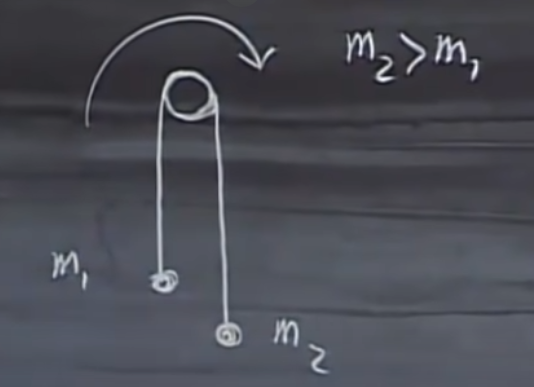 m₂>m₁
m₁
m₂